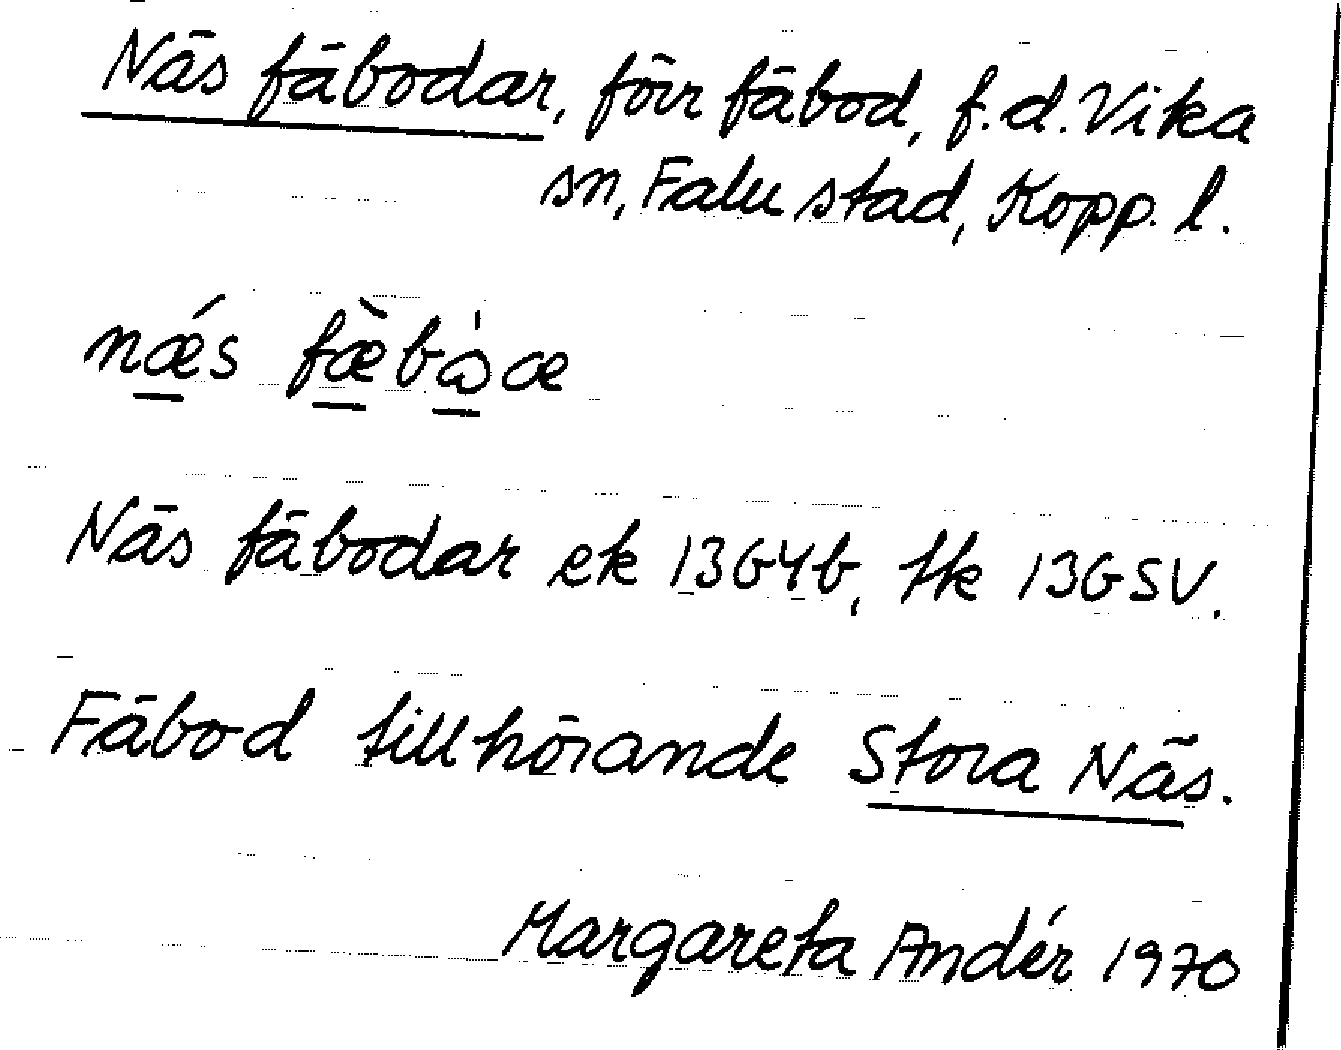 Näs fäbodar, förr fäbod, f.d. Vika
sn, Falu stad, Kopp. l.
næ´s fæ`bɷ̀æ
Näs fäbodar ek 13G4b, tk 13GSV.
Fäbod tillhörande Stora Näs.
Margareta Andér 1970